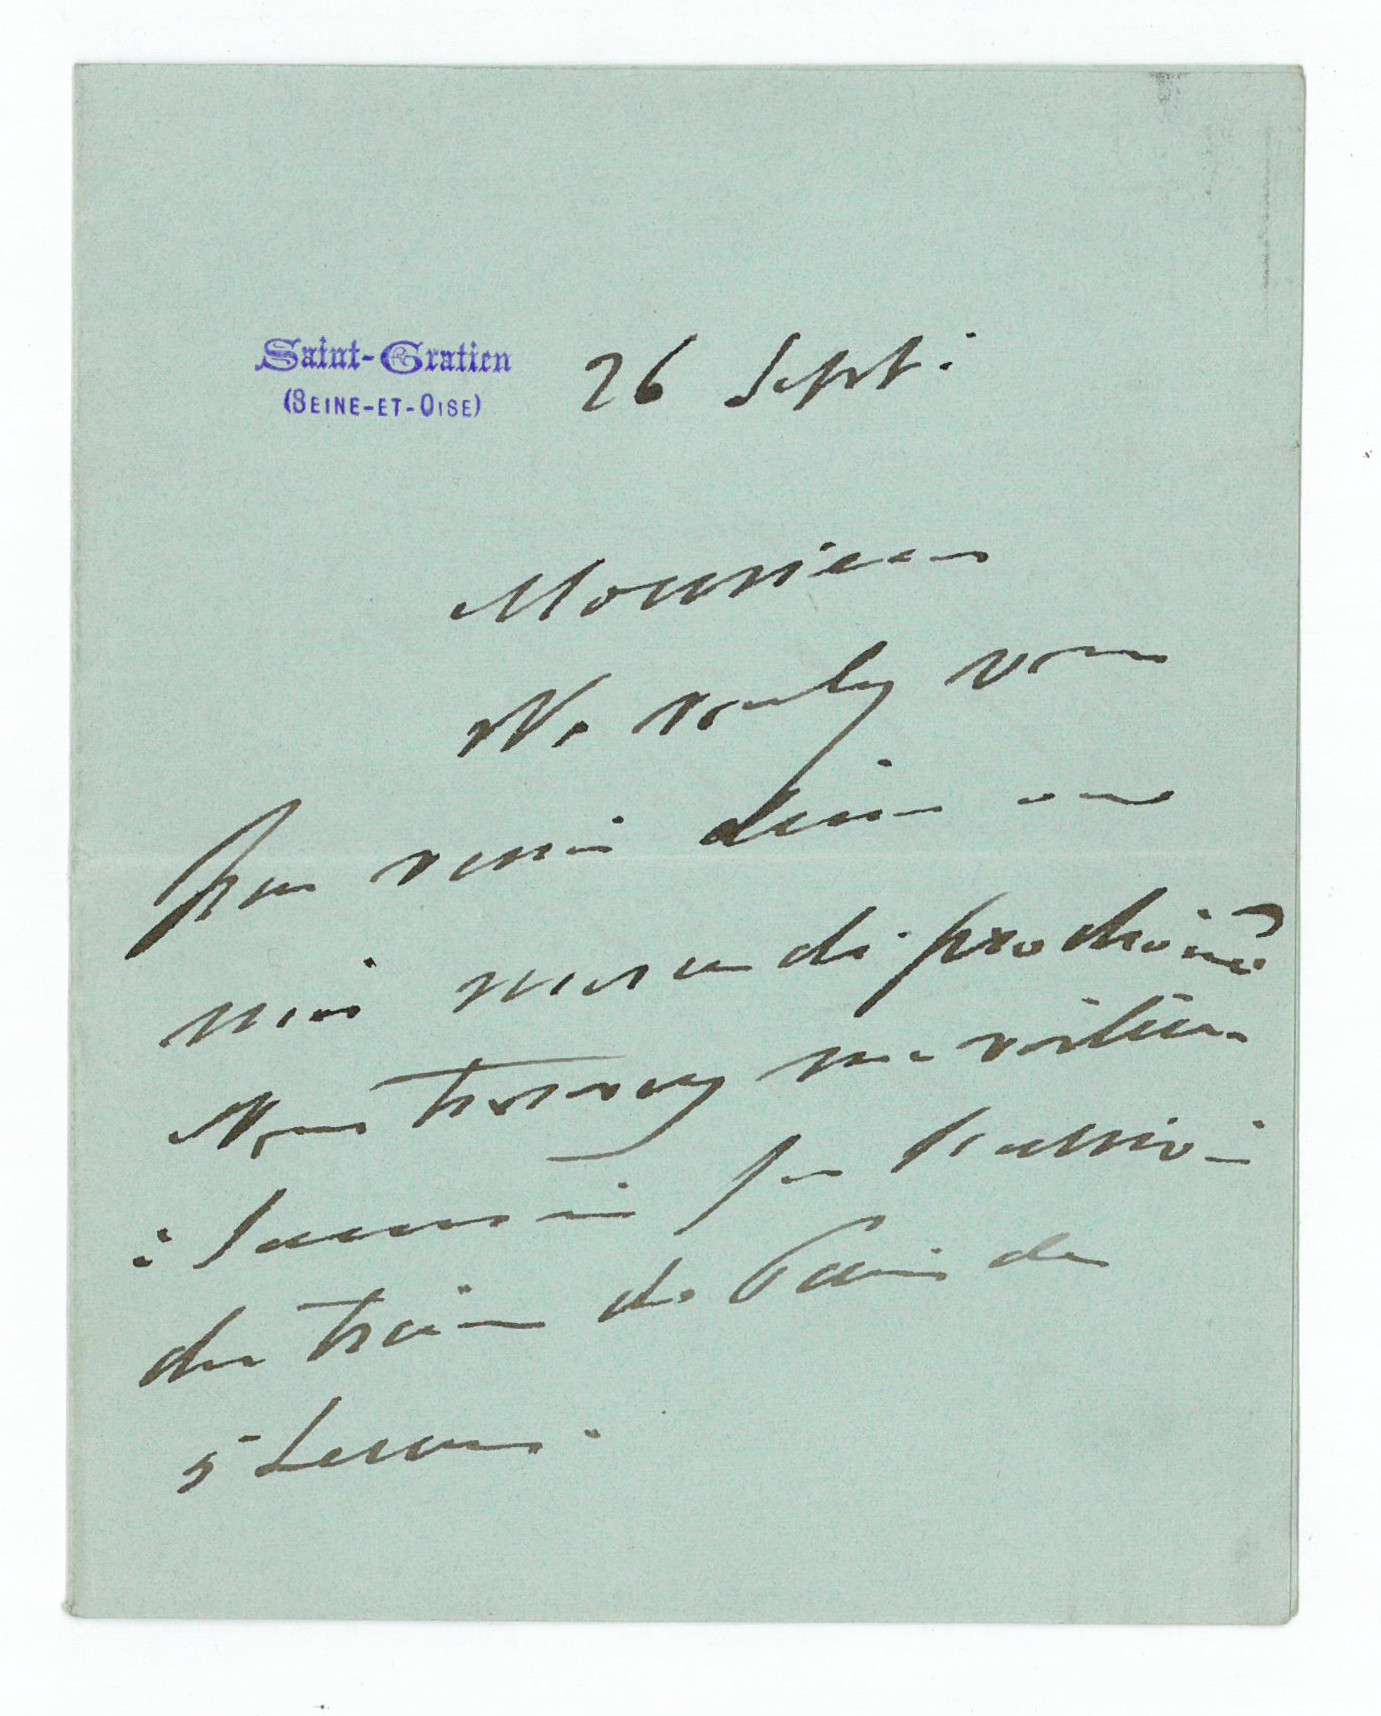 Saint-Gratien
(SEINE-ET-OISE)
26 Sept:
Monsieur
Ne voulez vous
pas venir diner avec
moi mercredi prochain?
Vous trouverez ma voiture
à Sannois
du train de Paris de
5 heures.